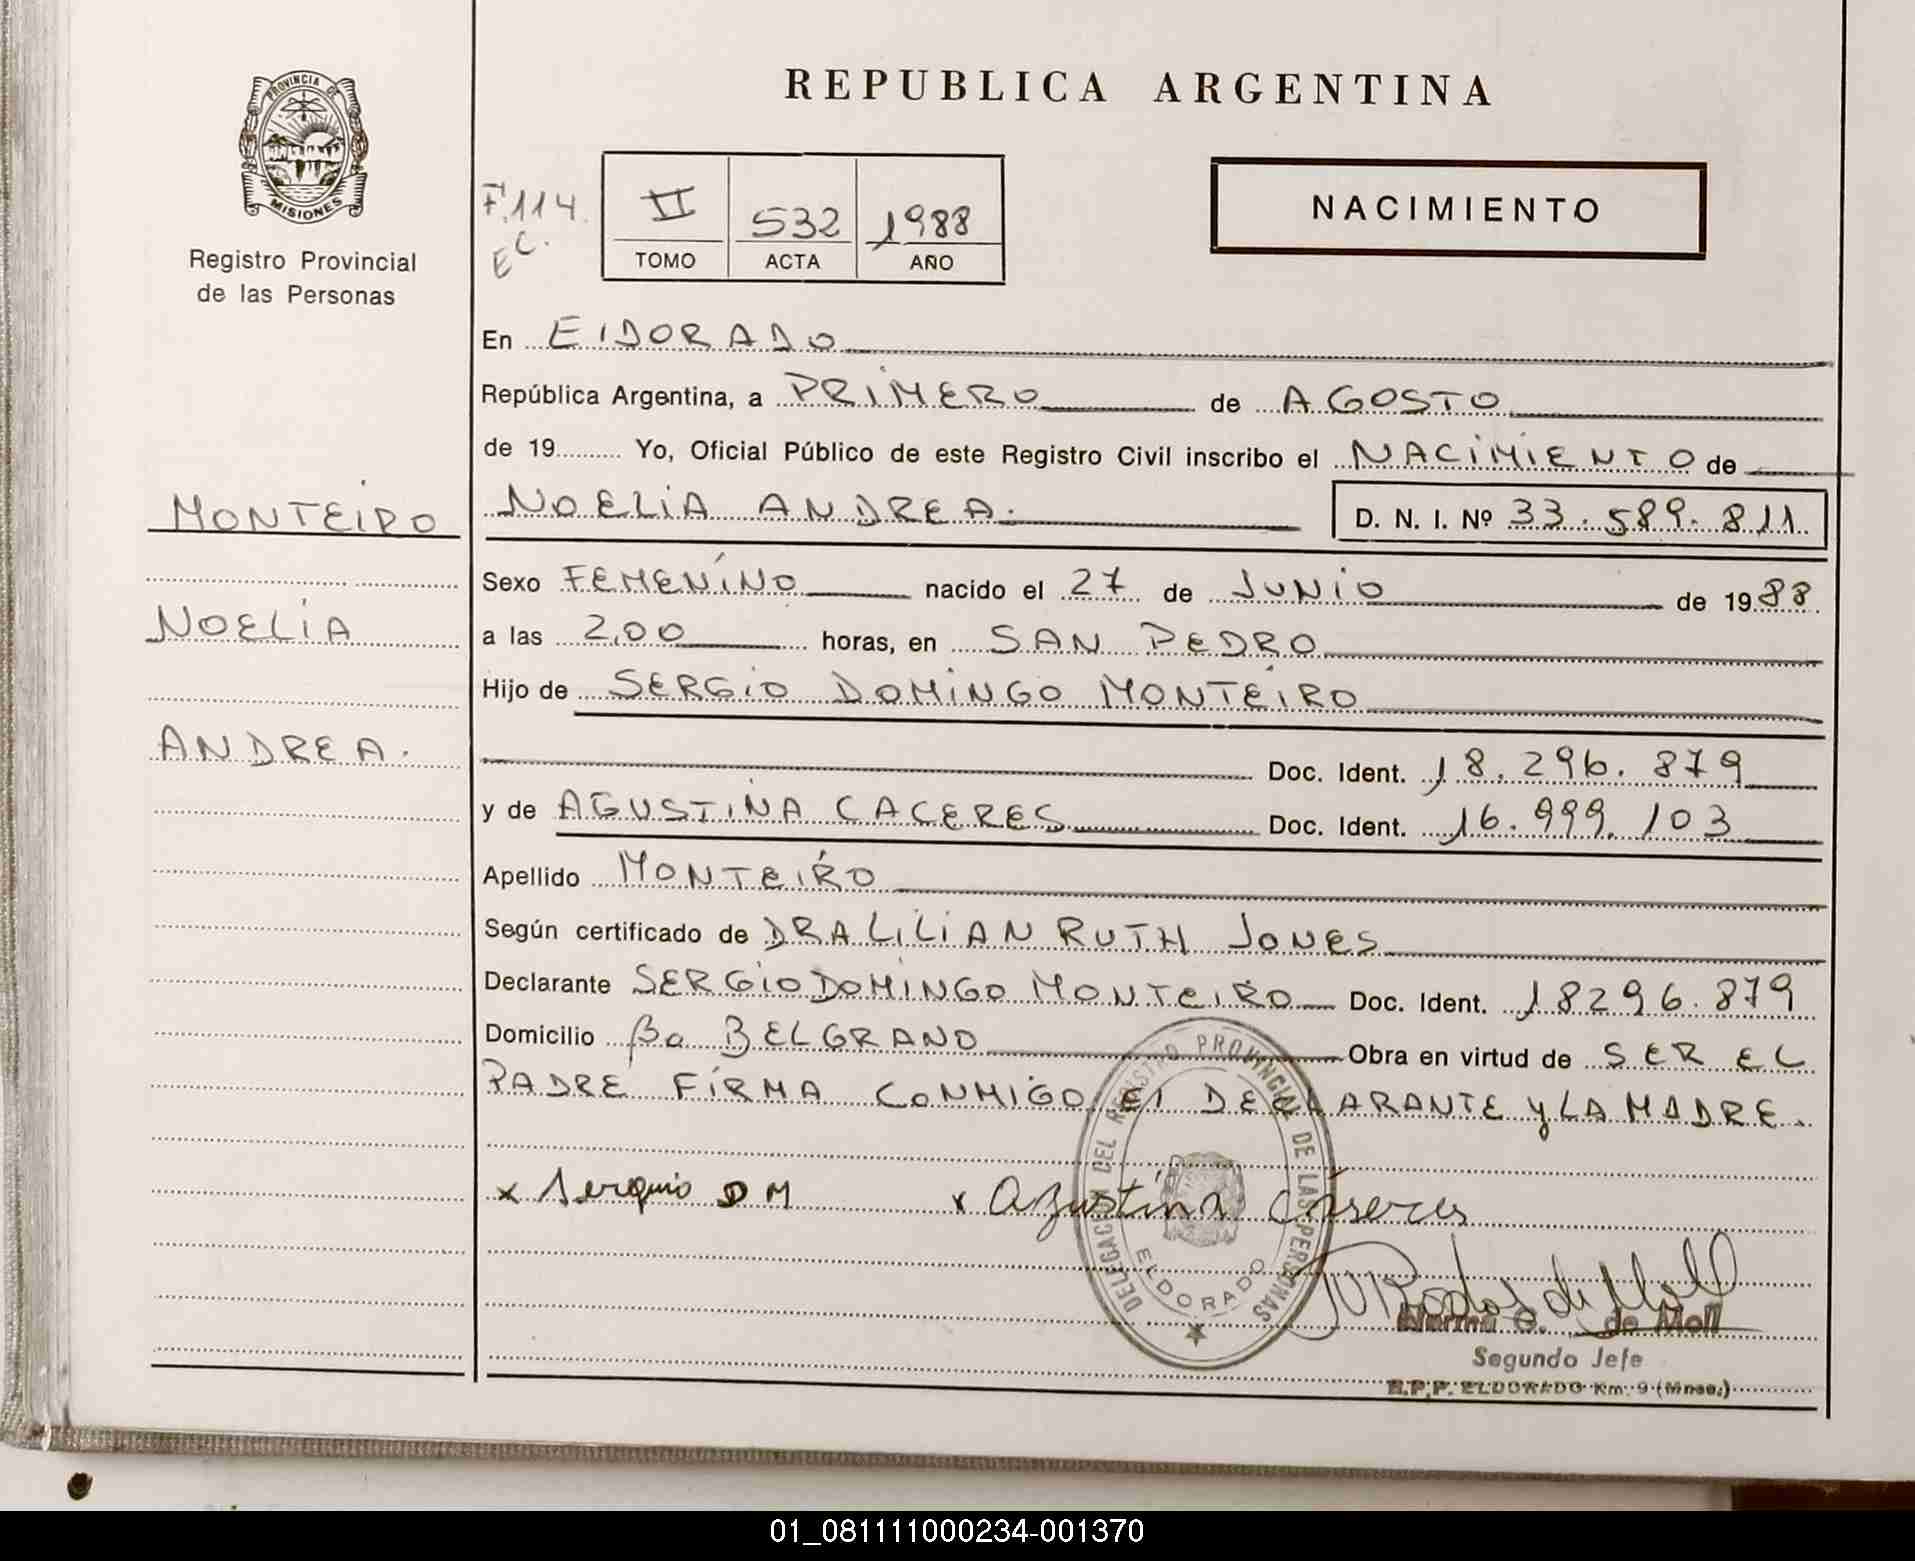 REPUBLICA ARGENTINA
PROVINCIA DE
MISIONES
Registro Provincial
de las Personas
F.114.
EC.
II 532 1988
TOMO ACTA AÑO
NACIMIENTO
En ElDORADO
República Argentina, a PRIMERO de AGOSTO
de 19.......... Yo, Oficial Público de este Registro Civil inscribo el NACIMIENTO de
MONTEIRO
NOELIA
ANDREA.
NOELIA ANDREA. D. N. I. Nº 33.589.811
Sexo FEMENINO nacido el 27 de JUNIO de 1988
a las 2,00 horas, en SAN PEDRO
Hijo de SERGIO DOMINGO MONTEIRO
Doc. Ident. 18.296.879
y de AGUSTINA CACERES Doc. Ident. 16.999.103
Apellido MONTEIRO
Según certificado de DRA LILIAN RUTH JONES
Declarante SERGIO DOMINGO MONTEIRO Doc. Ident. 18296.879
Domicilio Bo BELGRANO Obra en virtud de SER EL
PADRE FIRMA CONMIGO El DECLARANTE y LA MADRE.
x Serquio DM x Agustina Cáseres
DELEGACION DEL REGISTRO PROVINCIAL DE LAS PERSONAS
ELDORADO
Rodas de Moll
Norma G. de Moll
Segundo Jefe
R.P.P. ELDORADO Km. 9 (Mnes.)
01_081111000234-001370